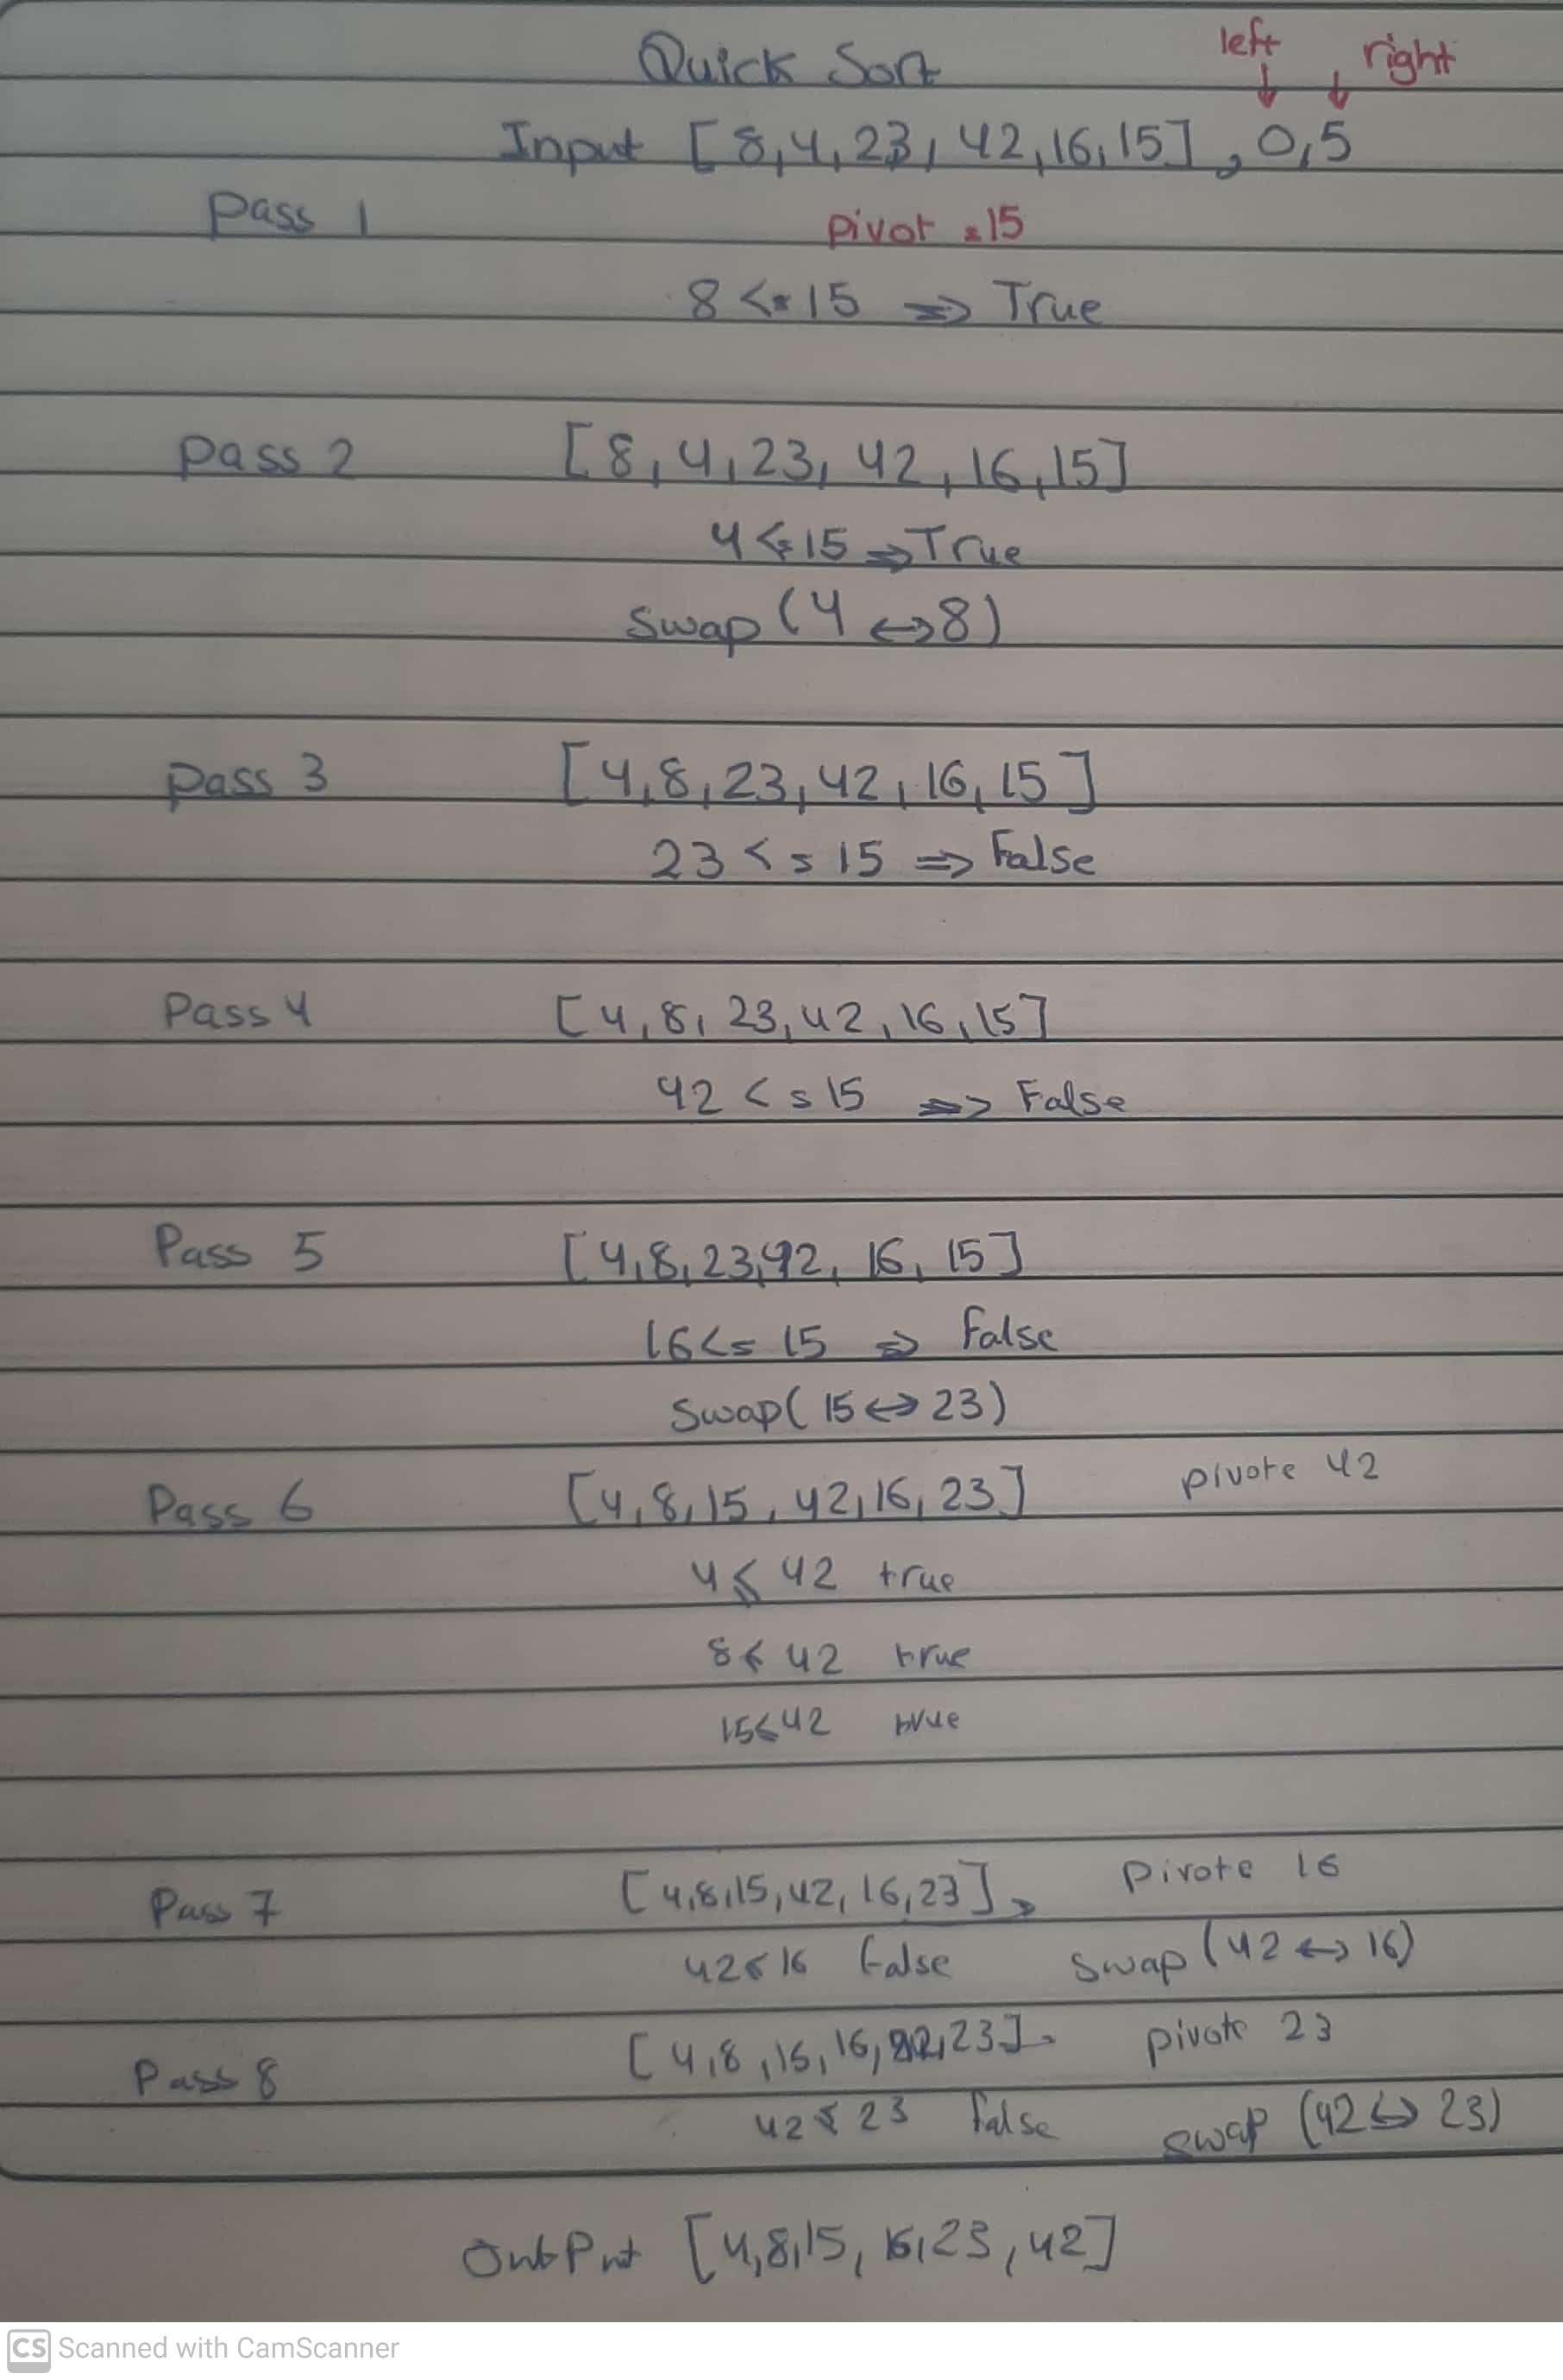 Quick Sort
left right
Input [8,4,23,42,16,15],0,5
Pass 1
Pivot = 15
8 <= 15 => True
Pass 2 [8,4,23,42,16,15]
4 <= 15 => True
Swap (4 <-> 8)
Pass 3 [4,8,23,42,16,15]
23 <= 15 => False
Pass 4 [4,8,23,42,16,15]
42 <= 15 => False
Pass 5 [4,8,23,42,16,15]
16 <= 15 => False
Swap (15 <-> 23)
Pass 6 [4,8,15,42,16,23] pivote 42
4 ≤ 42 true
8 ≤ 42 true
15 ≤ 42 true
Pass 7 [4,8,15,42,16,23], Pivote 16
42 ≤ 16 False Swap (42 <-> 16)
Pass 8 [4,8,15,16,42,23]. pivote 23
42 ≤ 23 False swap (42 <-> 23)
OutPut [4,8,15,16,23,42]
CS Scanned with CamScanner